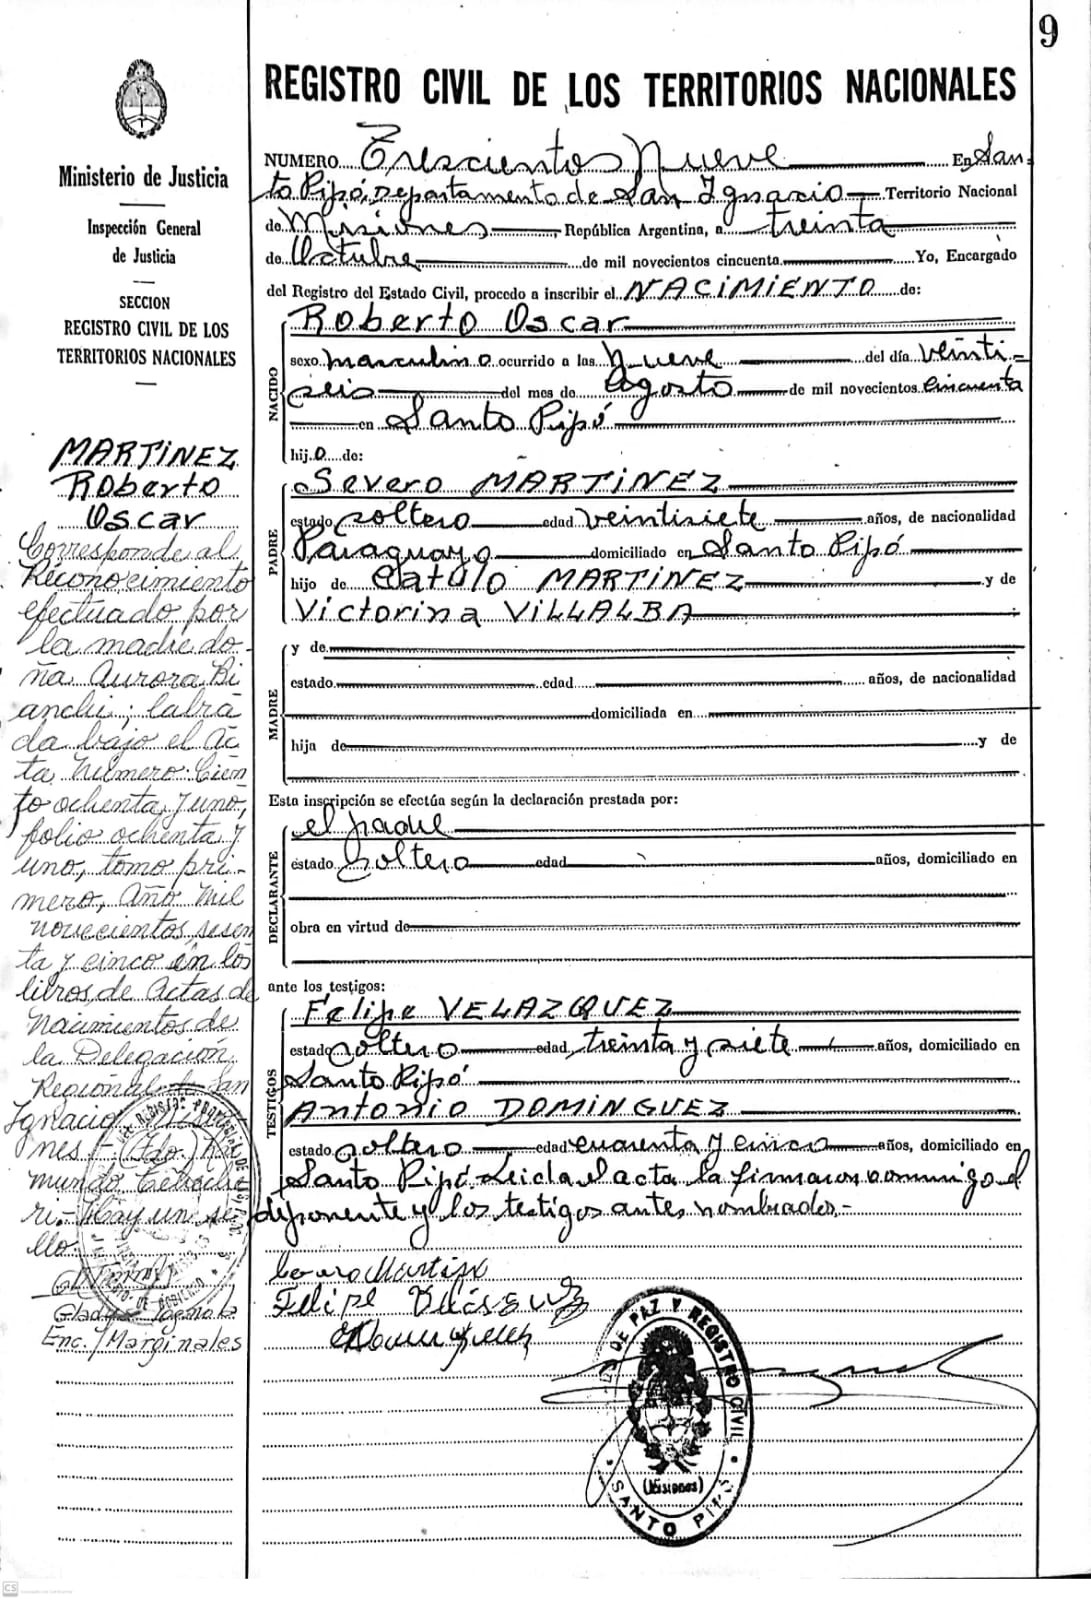 9
REGISTRO CIVIL DE LOS TERRITORIOS NACIONALES
Ministerio de Justicia
Inspección General
de Justicia
SECCION
REGISTRO CIVIL DE LOS
TERRITORIOS NACIONALES
MARTINEZ
Roberto
Oscar
Corresponde al
Reconocimiento
efectuado por
la madre do-
ña Aurora Bi
anchi; labra
da bajo el Ac
ta Número: Cien
to ochenta y uno,
folio ochenta y
uno, tomo pri-
mero, Año mil
novecientos sesen
ta y cinco en los
libros de Actas de
Nacimientos de
la Delegación
Regional de San
Ignacio
nes.- (Fdo.) Rai
mundo
ri.- Hay un se
llo.
Gladys
Enc./Marginales
NUMERO Trescientos Nueve En San-
to Pipó, Departamento de San Ignacio Territorio Nacional
de Misiones, República Argentina, a treinta
de Octubre de mil novecientos cincuenta Yo, Encargado
del Registro del Estado Civil, procedo a inscribir el NACIMIENTO de:
NACIDO
Roberto Oscar
sexo masculino ocurrido a las Nueve del día veinti-
seis del mes de Agosto de mil novecientos cincuenta
en Santo Pipó
hijo de:
PADRE
Severo MARTINEZ
estado soltero edad veintisiete años, de nacionalidad
Paraguayo domiciliado en Santo Pipó
hijo de Catulo MARTINEZ y de
Victorina VILLALBA
MADRE
y de
estado edad años, de nacionalidad
domiciliada en
hija de y de
Esta inscripción se efectúa según la declaración prestada por:
DECLARANTE
el padre
estado soltero edad años, domiciliado en
obra en virtud de
ante los testigos:
TESTIGOS
Felipe VELAZQUEZ
estado soltero edad treinta y siete años, domiciliado en
Santo Pipó
Antonio DOMINGUEZ
estado soltero edad cuarenta y cinco años, domiciliado en
Santo Pipó. Leida el acta la firmaron conmigo el
deponente y los testigos antes nombrados.-
Severo Martinez
Felipe Velásquez
DE PAZ Y REGISTRO CIVIL
(Misiones)
SANTO PIPÓ
CS